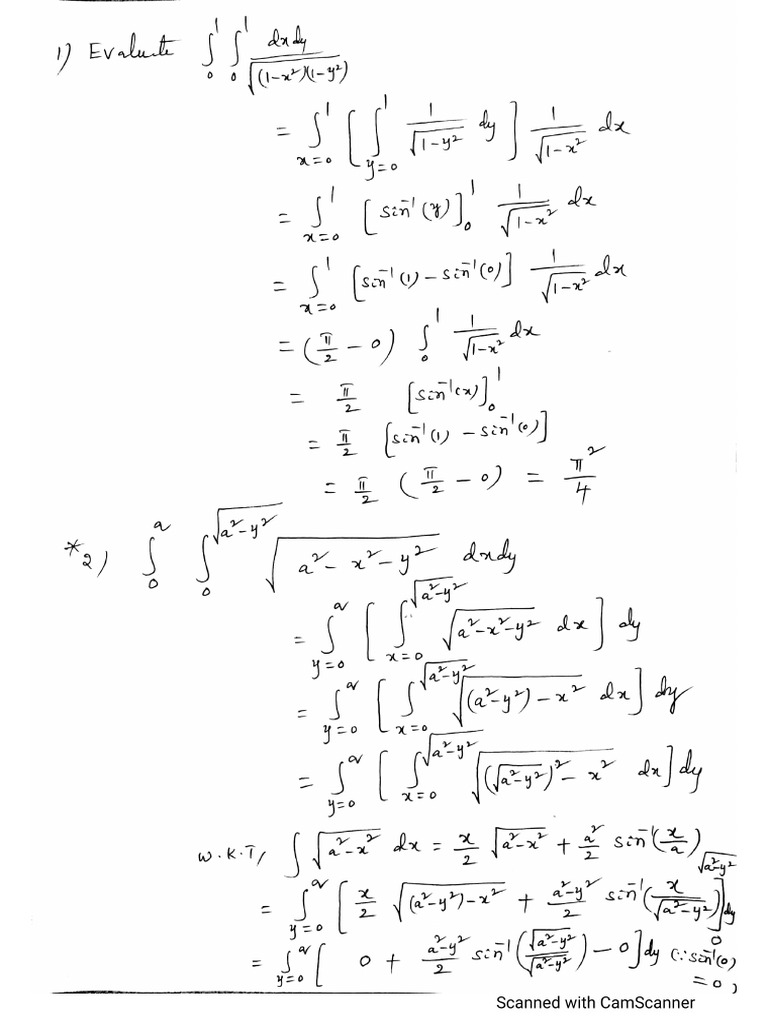 1) Evaluate ∫₀¹ ∫₀¹ dxdy / √((1-x²)(1-y²))
= ∫_{x=0}^{1} [ ∫_{y=0}^{1} 1/√(1-y²) dy ] 1/√(1-x²) dx
= ∫_{x=0}^{1} [sin⁻¹(y)]₀¹ 1/√(1-x²) dx
= ∫_{x=0}^{1} [sin⁻¹(1) - sin⁻¹(0)] 1/√(1-x²) dx
= (π/2 - 0) ∫₀¹ 1/√(1-x²) dx
= π/2 [sin⁻¹(x)]₀¹
= π/2 [sin⁻¹(1) - sin⁻¹(0)]
= π/2 (π/2 - 0) = π²/4
*2) ∫₀^a ∫₀^{√(a²-y²)} √(a²-x²-y²) dxdy
= ∫_{y=0}^{a} [ ∫_{x=0}^{√(a²-y²)} √(a²-x²-y²) dx ] dy
= ∫_{y=0}^{a} [ ∫_{x=0}^{√(a²-y²)} √((a²-y²)-x²) dx ] dy
= ∫_{y=0}^{a} [ ∫_{x=0}^{√(a²-y²)} √((√(a²-y²))²-x²) dx ] dy
W.K.T, ∫ √(a²-x²) dx = x/2 √(a²-x²) + a²/2 sin⁻¹(x/a)
= ∫_{y=0}^{a} [ x/2 √((a²-y²)-x²) + (a²-y²)/2 sin⁻¹(x/√(a²-y²)) ]₀^{√(a²-y²)} dy
= ∫_{y=0}^{a} [ 0 + (a²-y²)/2 sin⁻¹(√(a²-y²)/√(a²-y²)) - 0 ] dy (∵ sin⁻¹(0) = 0,
Scanned with CamScanner